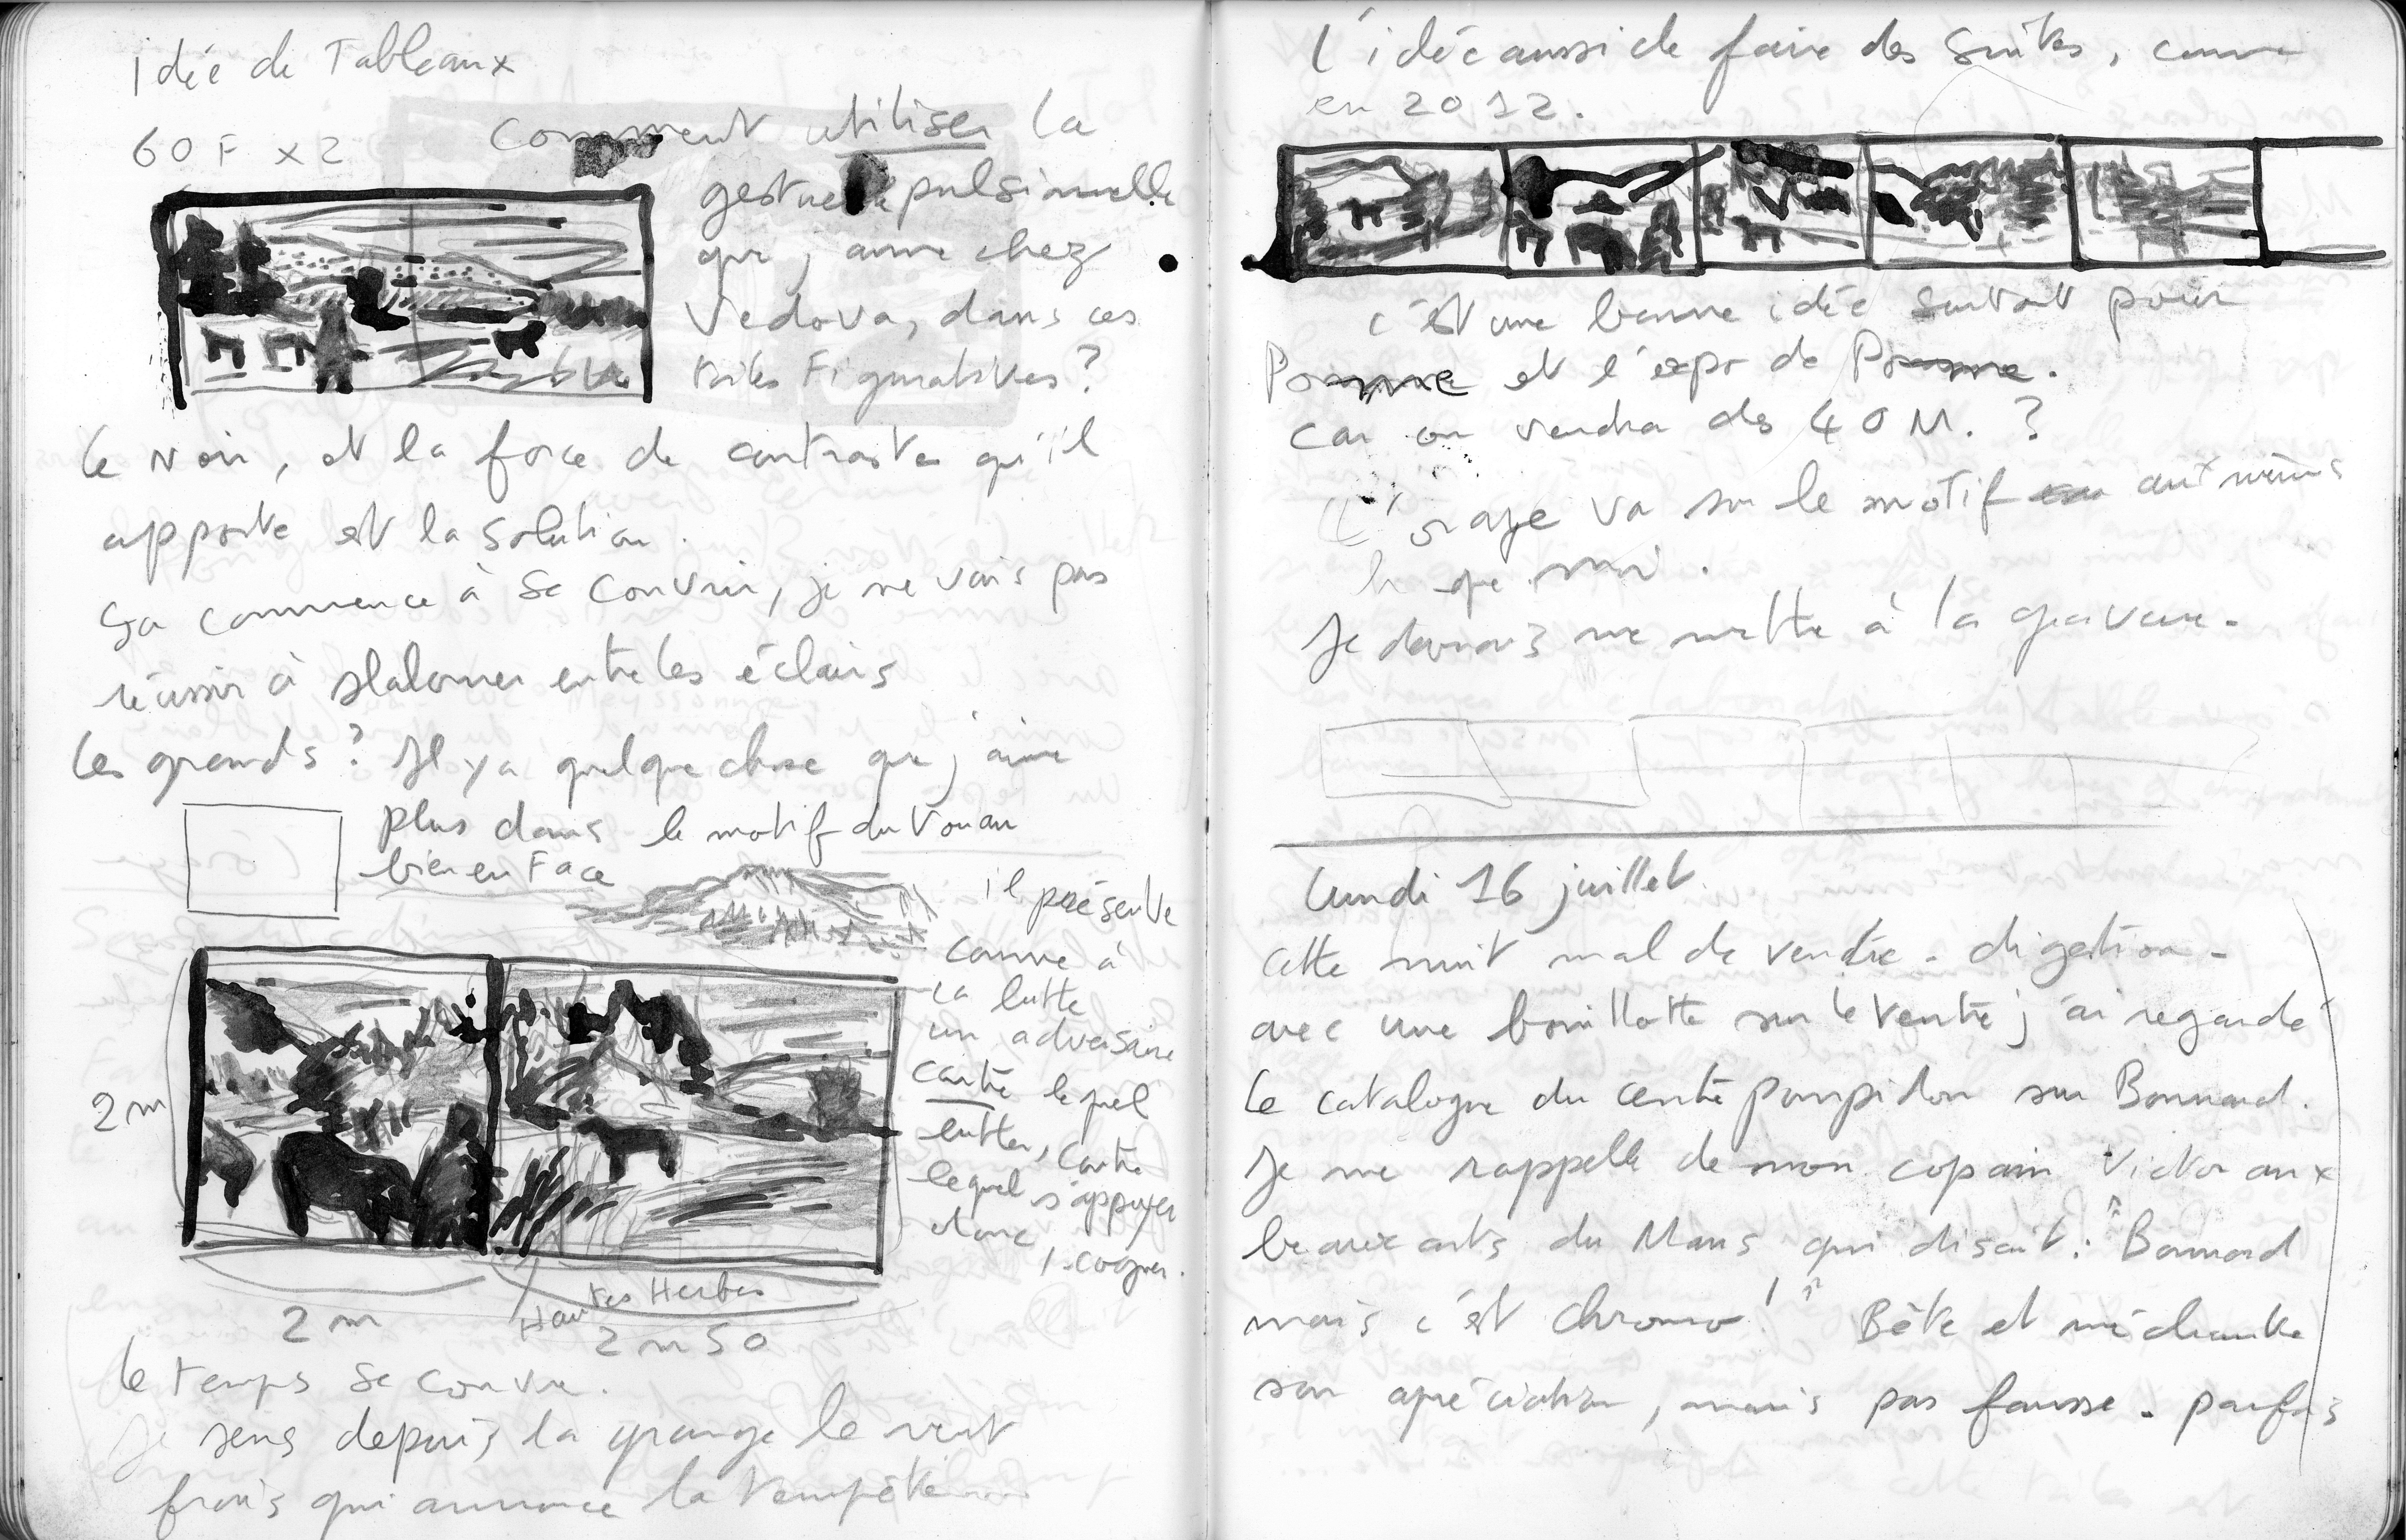 idée de Tableaux
60 F x 2
Comment utiliser la
gestuelle pulsionnelle
que j'aime chez
Vedova, dans ces
toiles Figuratives?
le Noir, et la force de contraste qu'il
apporte est la solution.
ça commence à se couvrir, je ne vais pas
réussir à slalomer entre les éclairs
les grands? Il y a quelque chose que j'aime
plus dans le motif du Vouan
bien en Face
il présente
comme à
la lutte
un adversaire
contre lequel
lutter, contre
lequel s'appuyer
donc, cogner.
2 m
2 m
Hautes Herbes
2 m 50
le temps se couvre.
je sens depuis la grange le vent
frais qui annonce la tempête
l'idée aussi de faire des suites, comme
en 2012.
c'est une bonne idée surtout pour
et l'expo de
car on vendra des 40 M. ?
L'orage va sur le motif aux mêmes
h que moi.
Je devrais me mettre à la gravure.
Lundi 16 juillet
cette nuit mal de ventre - digestion -
avec une bouillotte sur le ventre j'ai regardé
le catalogue du centre pompidou sur Bonnard.
Je me rappelle de mon copain Victor aux
beaux arts du Mans qui disait : "Bonnard
mais c'est chromo !" Bête et méchante
son apréciation, mais pas fausse. parfois